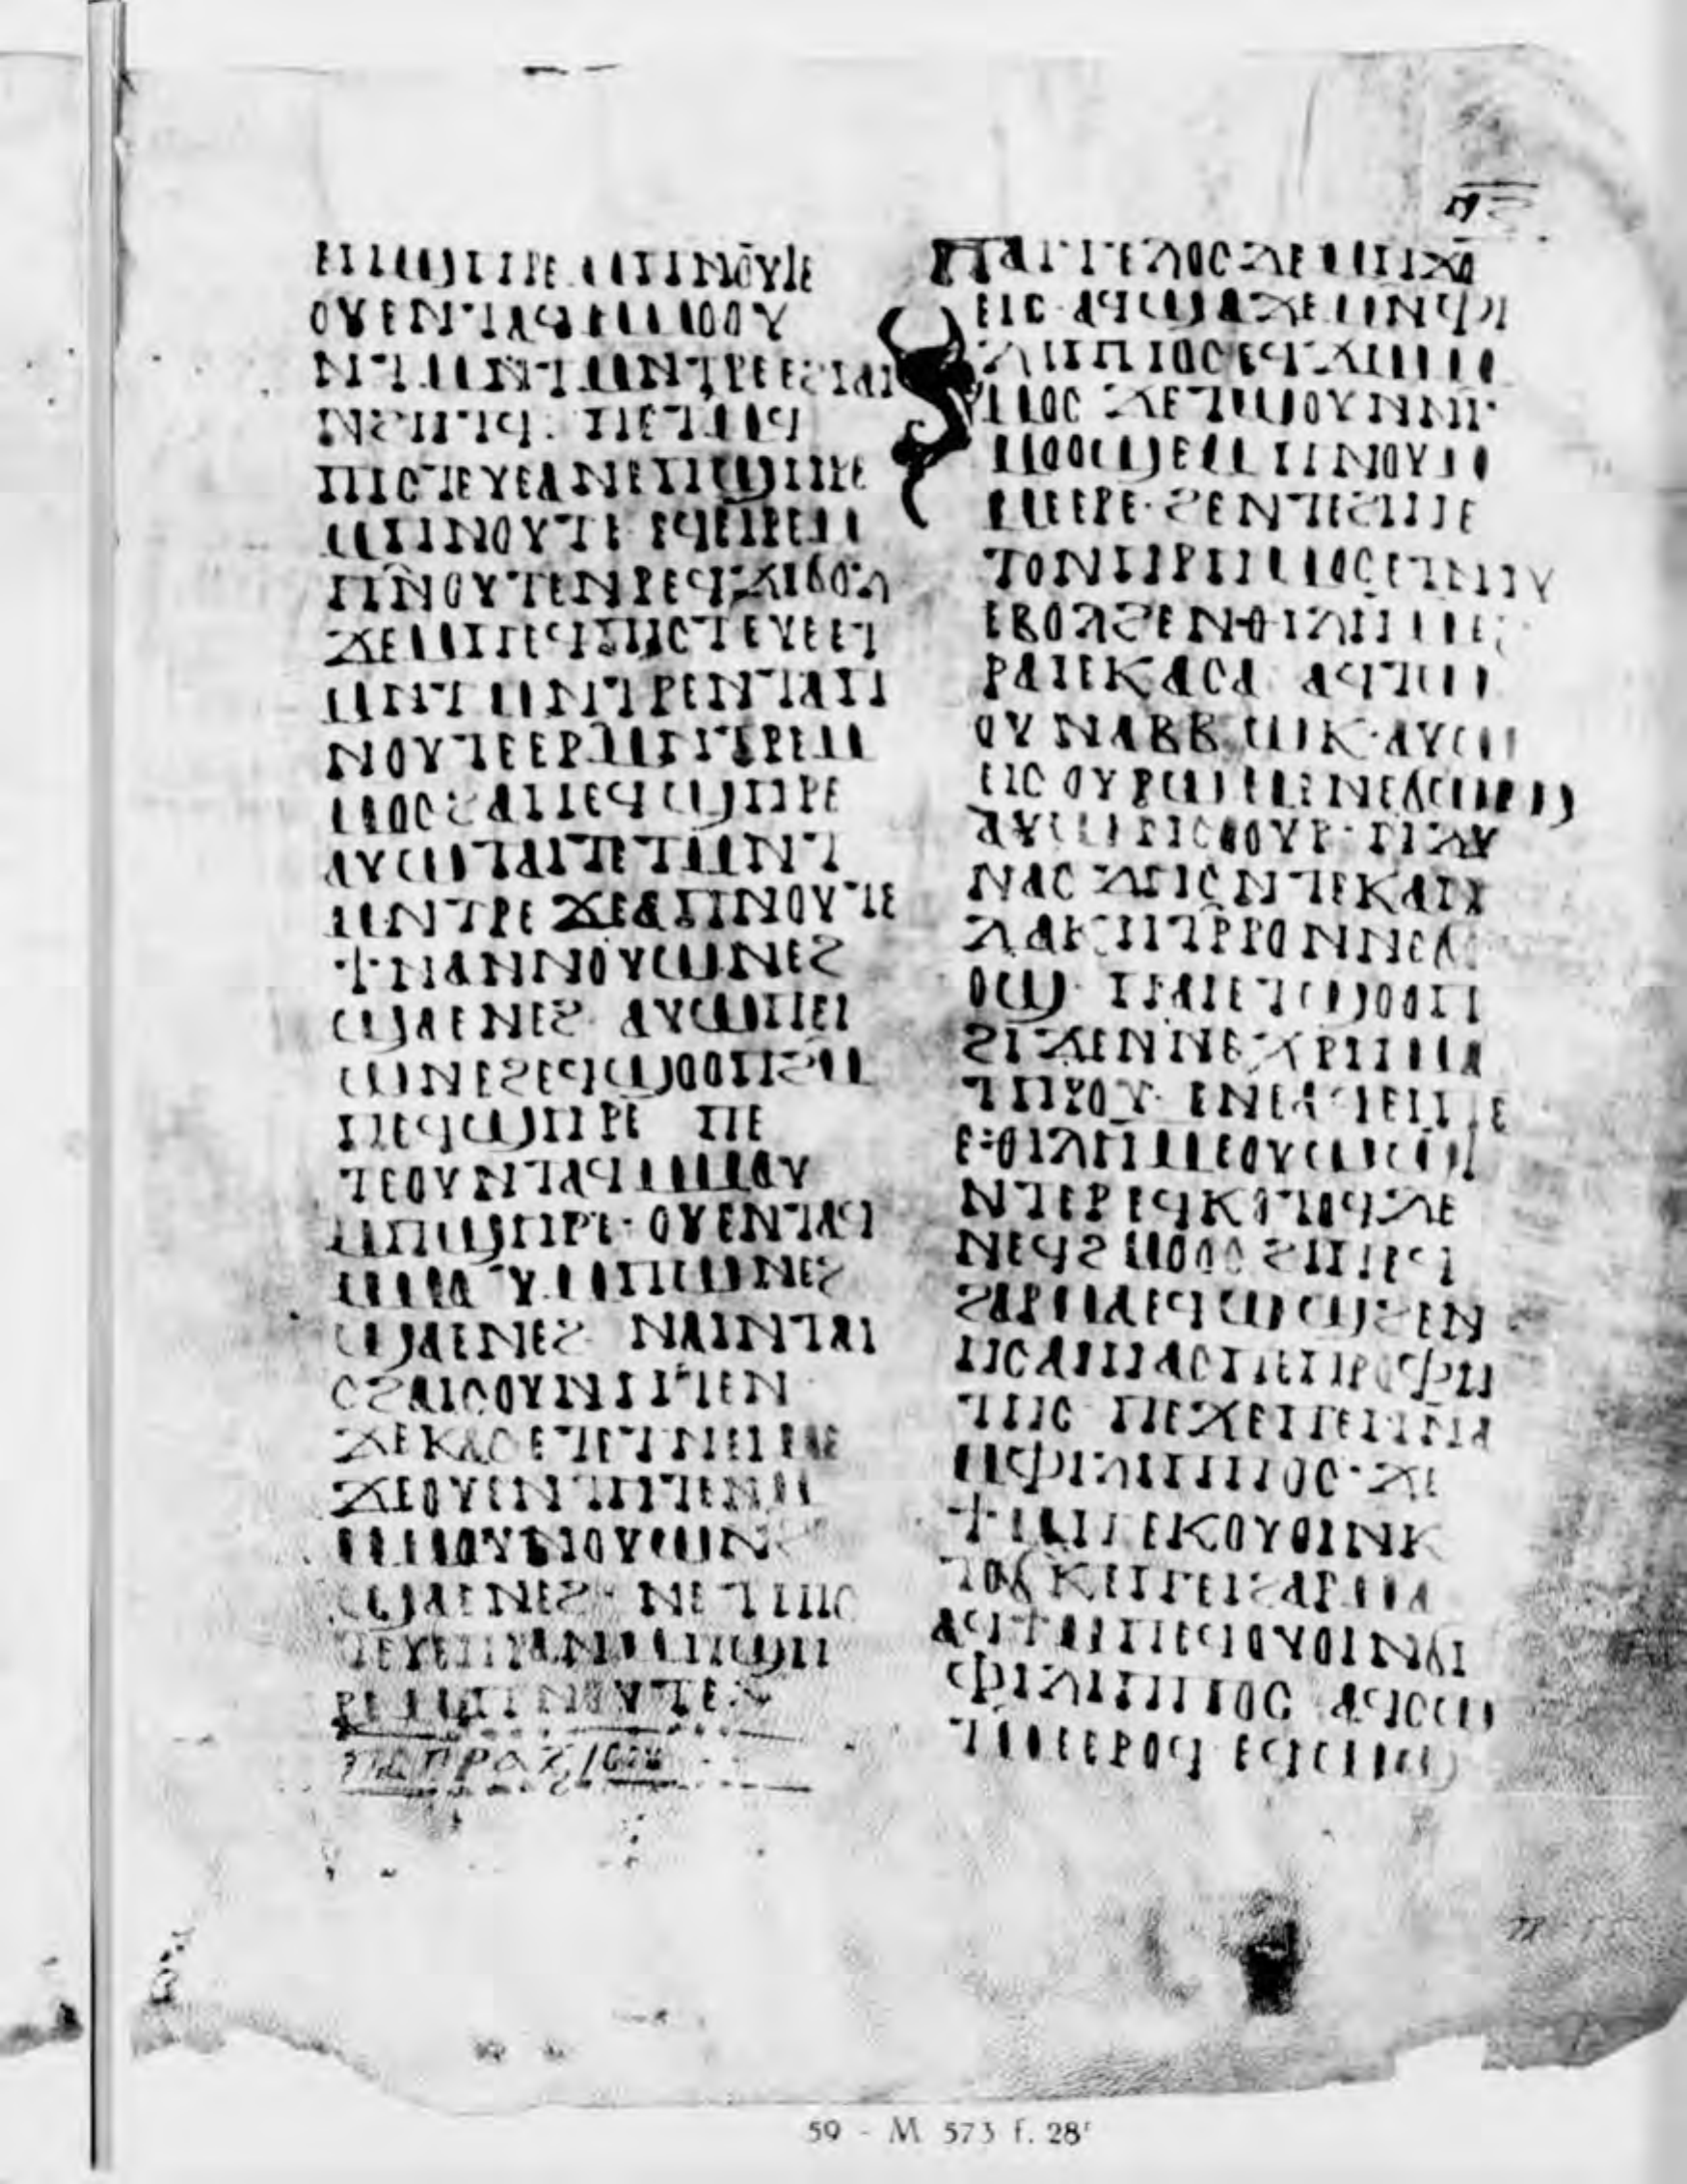 ⲉⲡϣⲏⲣⲉ ⲙⲡⲛⲟⲩⲧⲉ
ⲟⲩⲉⲛⲧⲁϥ ⲙⲙⲟⲟⲩ
ⲛⲧⲙⲛⲧⲙⲛⲧⲣⲉ ⲉϩⲣⲁⲓ
ⲛϩⲏⲧϥ· ⲡⲉⲧⲛϥ
ⲡⲓⲥⲧⲉⲩⲉ ⲁⲛ ⲉⲡϣⲏⲣⲉ
ⲙⲡⲛⲟⲩⲧⲉ ⲉϥⲉⲓⲣⲉ ⲙ
ⲡⲛⲟⲩⲧⲉ ⲛⲣⲉϥϫⲓϭⲟⲗ
ϫⲉ ⲙⲡⲉϥⲡⲓⲥⲧⲉⲩⲉ ⲉⲧ
ⲙⲛⲧⲙⲛⲧⲣⲉ ⲛⲧⲁⲡ
ⲛⲟⲩⲧⲉ ⲉⲣⲙⲛⲧⲣⲉ ⲙ
ⲙⲟⲥ ϩⲁ ⲡⲉϥϣⲏⲣⲉ
ⲁⲩⲱ ⲧⲁⲓ ⲧⲉ ⲧⲙⲛⲧ
ⲙⲛⲧⲣⲉ ϫⲉ ⲁ ⲡⲛⲟⲩⲧⲉ
ϯ ⲛⲁⲛ ⲛⲛⲟⲩⲱⲛⲉϩ
ϣⲁⲉⲛⲉϩ· ⲁⲩⲱ ⲡⲉⲓ
ⲱⲛⲉϩ ⲉϥϣⲟⲟⲡ ϩⲙ
ⲡⲉϥϣⲏⲣⲉ ⲡⲉ
ⲧⲉⲟⲩⲛⲧⲁϥ ⲙⲙⲁⲩ
ⲙⲡϣⲏⲣⲉ· ⲟⲩⲉⲛⲧⲁϥ
ⲙⲙⲁⲩ ⲙⲡⲱⲛⲉϩ
ϣⲁⲉⲛⲉϩ· ⲛⲁⲓ ⲛⲧⲁⲓ
ⲥϩⲁⲓⲥⲟⲩ ⲛⲏⲧⲉⲛ
ϫⲉⲕⲁⲥ ⲉⲧⲉⲧⲛⲉⲓⲙⲉ
ϫⲉ ⲟⲩⲉⲛⲧⲏⲧⲉⲛ
ⲙⲙⲁⲩ ⲛⲟⲩⲱⲛϩ
ϣⲁⲉⲛⲉϩ· ⲛⲉⲧⲡⲓⲥ
ⲧⲉⲩⲉ ⲉⲡⲣⲁⲛ ⲙⲡϣⲏ
ⲣⲉ ⲙⲡⲛⲟⲩⲧⲉ
ⲡⲣⲁⲝⲓⲥ
ⲡⲁⲅⲅⲉⲗⲟⲥ ⲇⲉ ⲙⲡϫⲟ
ⲉⲓⲥ ⲁϥϣⲁϫⲉ ⲙⲛ ⲫⲓ
ⲗⲓⲡⲡⲟⲥ ⲉϥϫⲱ ⲙ
ⲙⲟⲥ ϫⲉ ⲧⲱⲟⲩⲛ ⲛⲅ
ⲙⲟⲟϣⲉ ⲙⲡⲛⲟⲩ ⲙ
ⲙⲉⲉⲣⲉ· ϩⲉⲛ ⲧⲉϩⲓⲏ ⲉ
ⲧⲟⲛ ⲛⲉⲣⲏⲙⲟⲥ ⲉⲧⲛⲏⲩ
ⲉⲃⲟⲗ ϩⲉⲛ ⲑⲓⲗⲏⲙ ⲉϩ
ⲣⲁⲓ ⲉⲕⲁⲥⲁ ⲁϥⲧⲱ
ⲟⲩⲛ ⲁⲃⲃⲱⲕ· ⲁⲩⲱ
ⲉⲓⲥ ⲟⲩⲣⲱⲙⲉ ⲛⲉϭⲱϣ
ⲁⲩⲱ ⲛⲥⲓⲟⲩⲣ· ⲡⲇⲩ
ⲛⲁⲥⲧⲏⲥ ⲛⲧⲉ ⲕⲁⲛ
ⲇⲁⲕⲏ ⲧⲣⲣⲟ ⲛⲛⲉϭ
ⲟϣ· ⲡⲁⲓ ⲉⲧϣⲟⲟⲡ
ϩⲓϫⲉⲛ ⲛⲉⲭⲣⲏⲙⲁ
ⲧⲏⲣⲟⲩ· ⲉⲛⲉⲁϥⲉⲓ ⲡⲉ
ⲉⲑⲓⲗⲏⲙ ⲉⲟⲩⲱϣⲧ
ⲛⲧⲉⲣⲉϥⲕⲟⲧϥ ⲇⲉ
ⲛⲉϥϩⲙⲟⲟⲥ ϩⲓ ⲡⲉϥ
ϩⲁⲣⲙⲁ ⲉϥⲱϣ ϩⲉⲛ
ⲏⲥⲁⲓⲁⲥ ⲡⲉⲡⲣⲟⲫⲏ
ⲧⲏⲥ ⲡⲉϫⲉ ⲡⲉⲡⲛⲁ
ⲙⲫⲓⲗⲓⲡⲡⲟⲥ· ϫⲉ
ϯ ⲙⲡⲉⲕⲟⲩⲟⲓ ⲛⲅ
ⲧⲟϭⲕ ⲉⲡⲉⲓϩⲁⲣⲙⲁ
ⲁϥϯ ⲙⲡⲉϥⲟⲩⲟⲓ ⲛϭⲓ
ⲫⲓⲗⲓⲡⲡⲟⲥ ⲁϥⲥⲱ
ⲧⲙ ⲉⲣⲟϥ ⲉϥⲱϣ
59 - M 573 f. 28ʳ